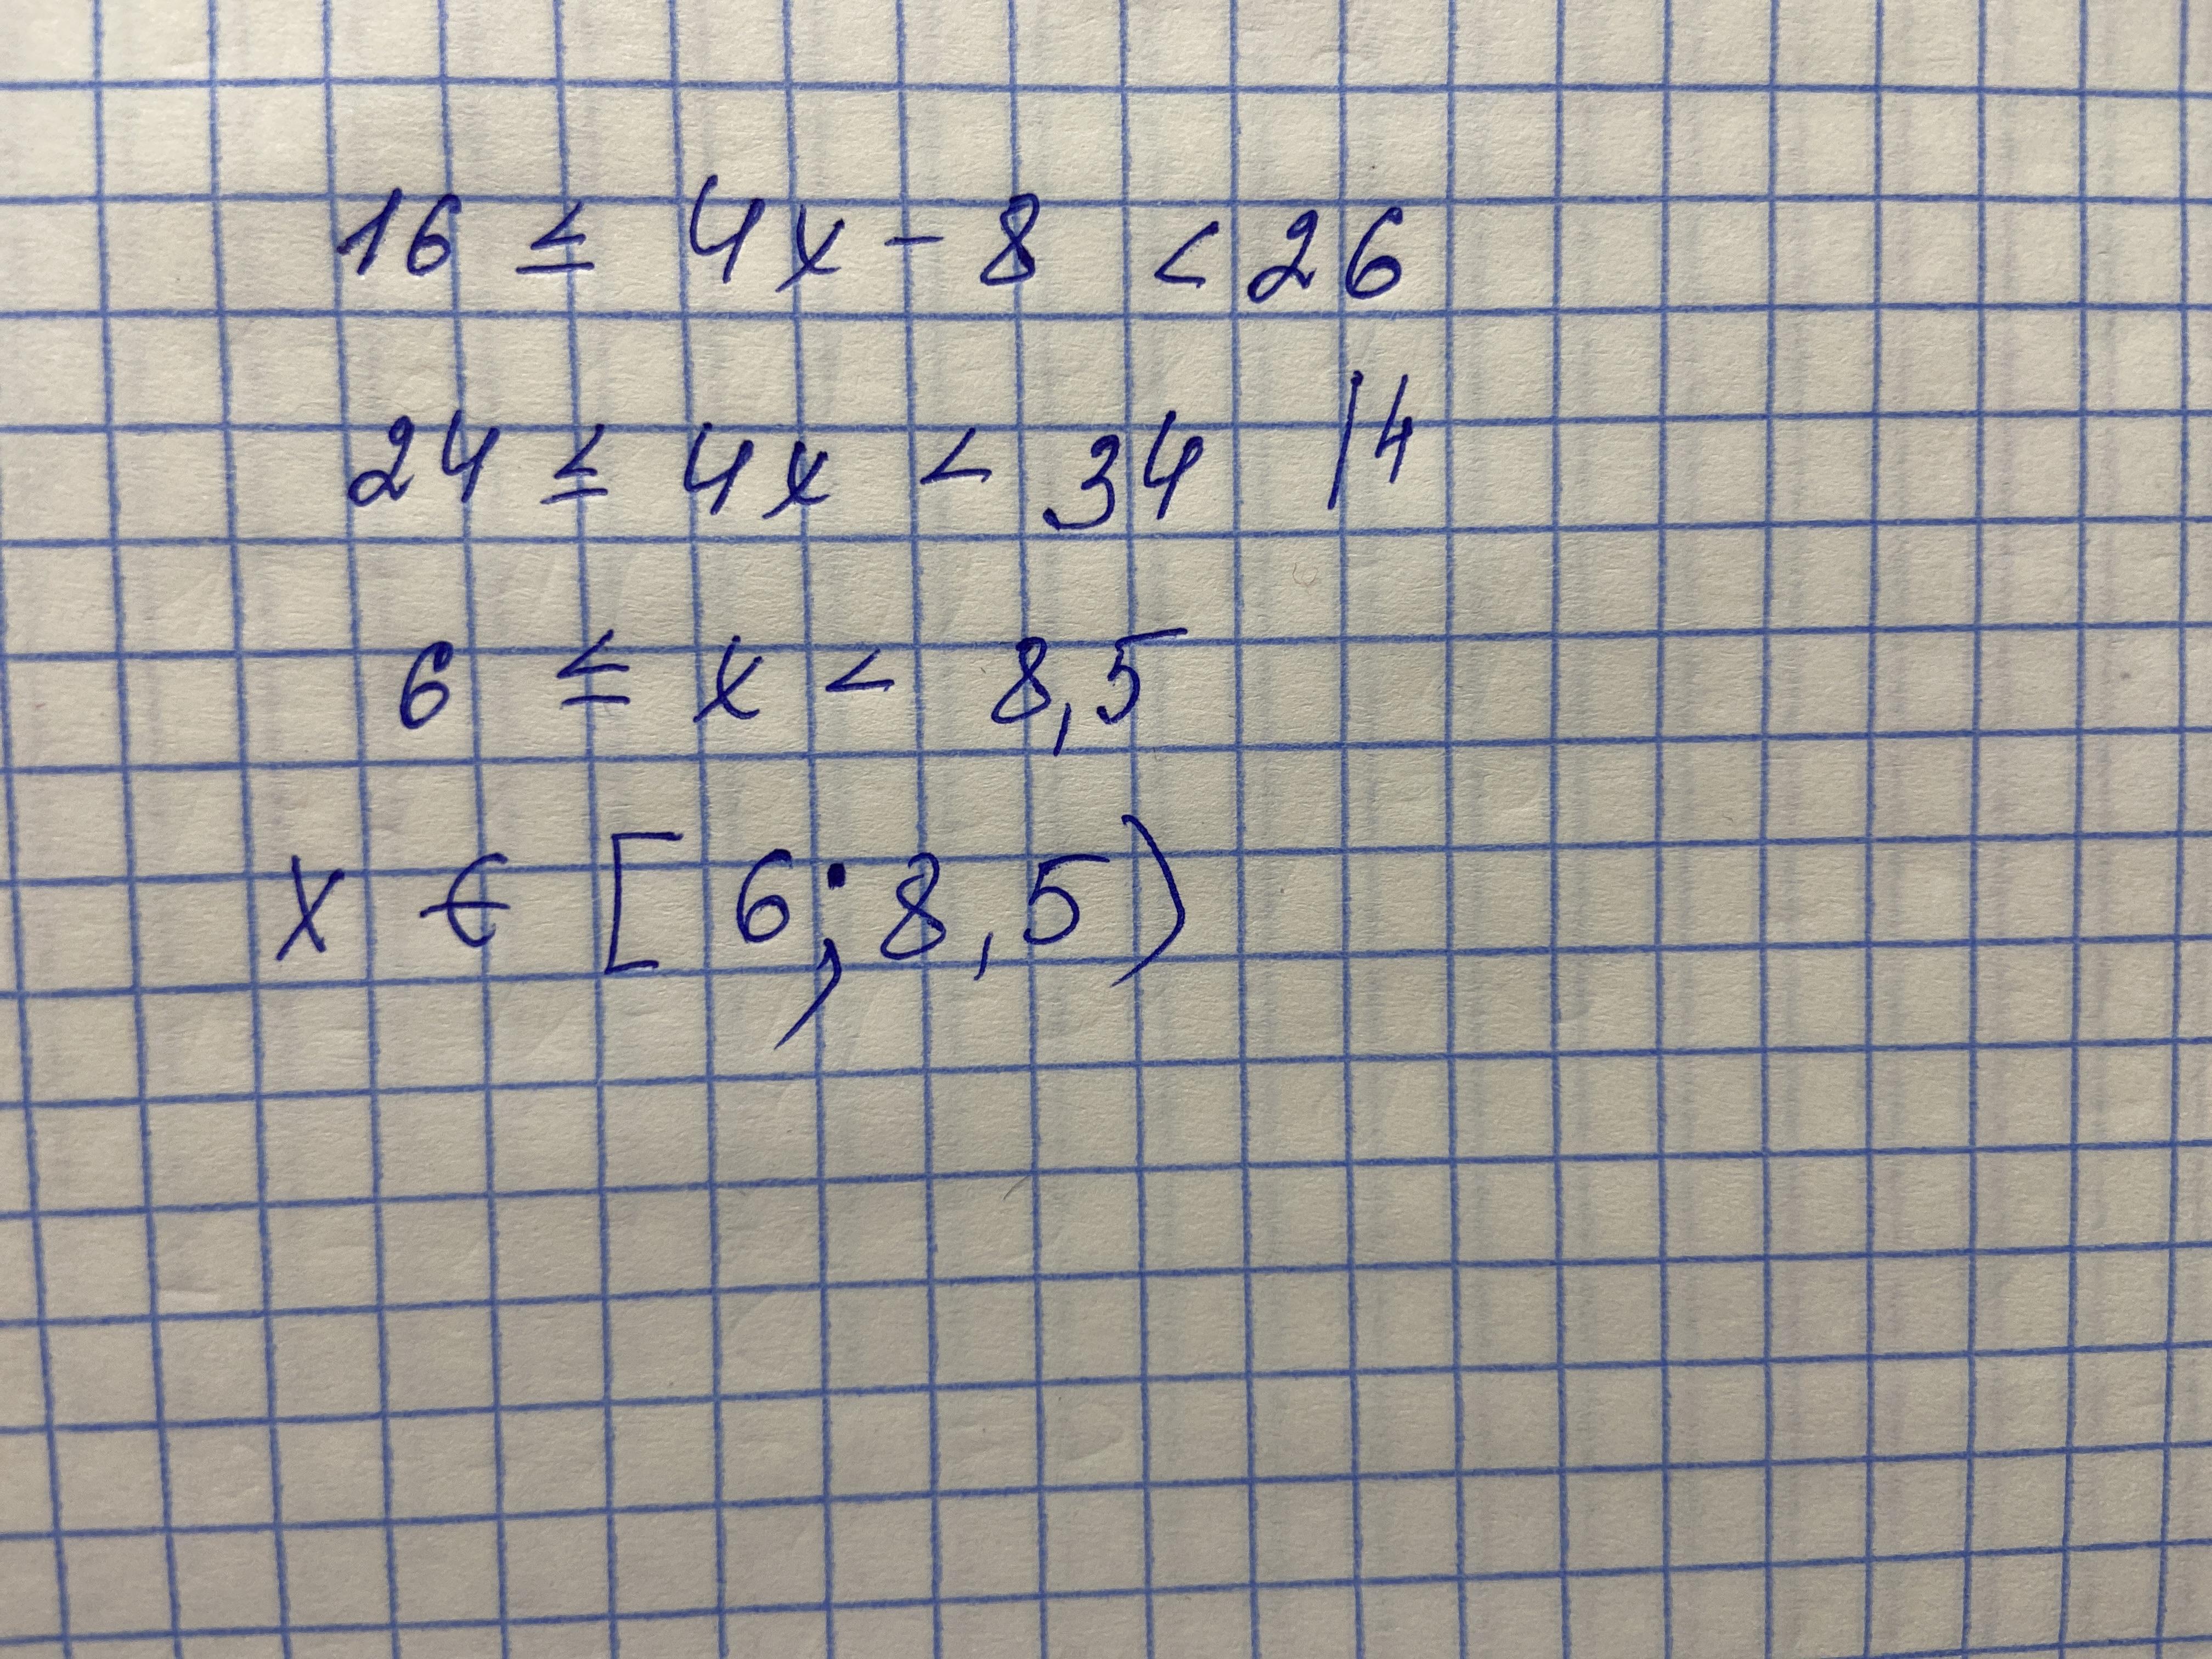 16 ≤ 4x - 8 < 26
24 ≤ 4x < 34 |4
6 ≤ x < 8,5
x ∈ [6; 8,5)